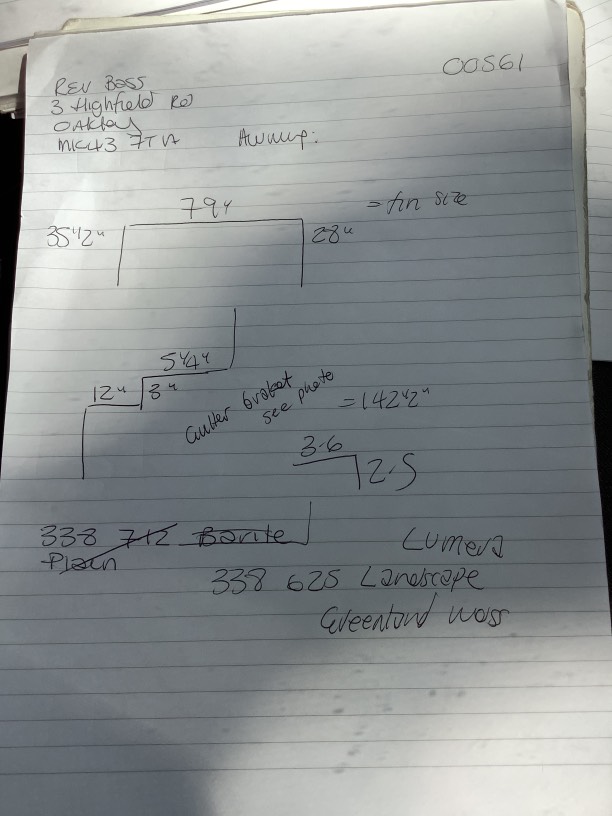 00561
REV BASS
3 Highfield Rd
OAKley
MK43 7TA Awning:
79" = fin size
35 1/2" 28"
5 1/4"
12" 3"
Gutter braket
see photo = 142 1/2"
3.6
2.5
338 712 Borite
Plain
Lumera
338 625 Landscape
Greenland Moss